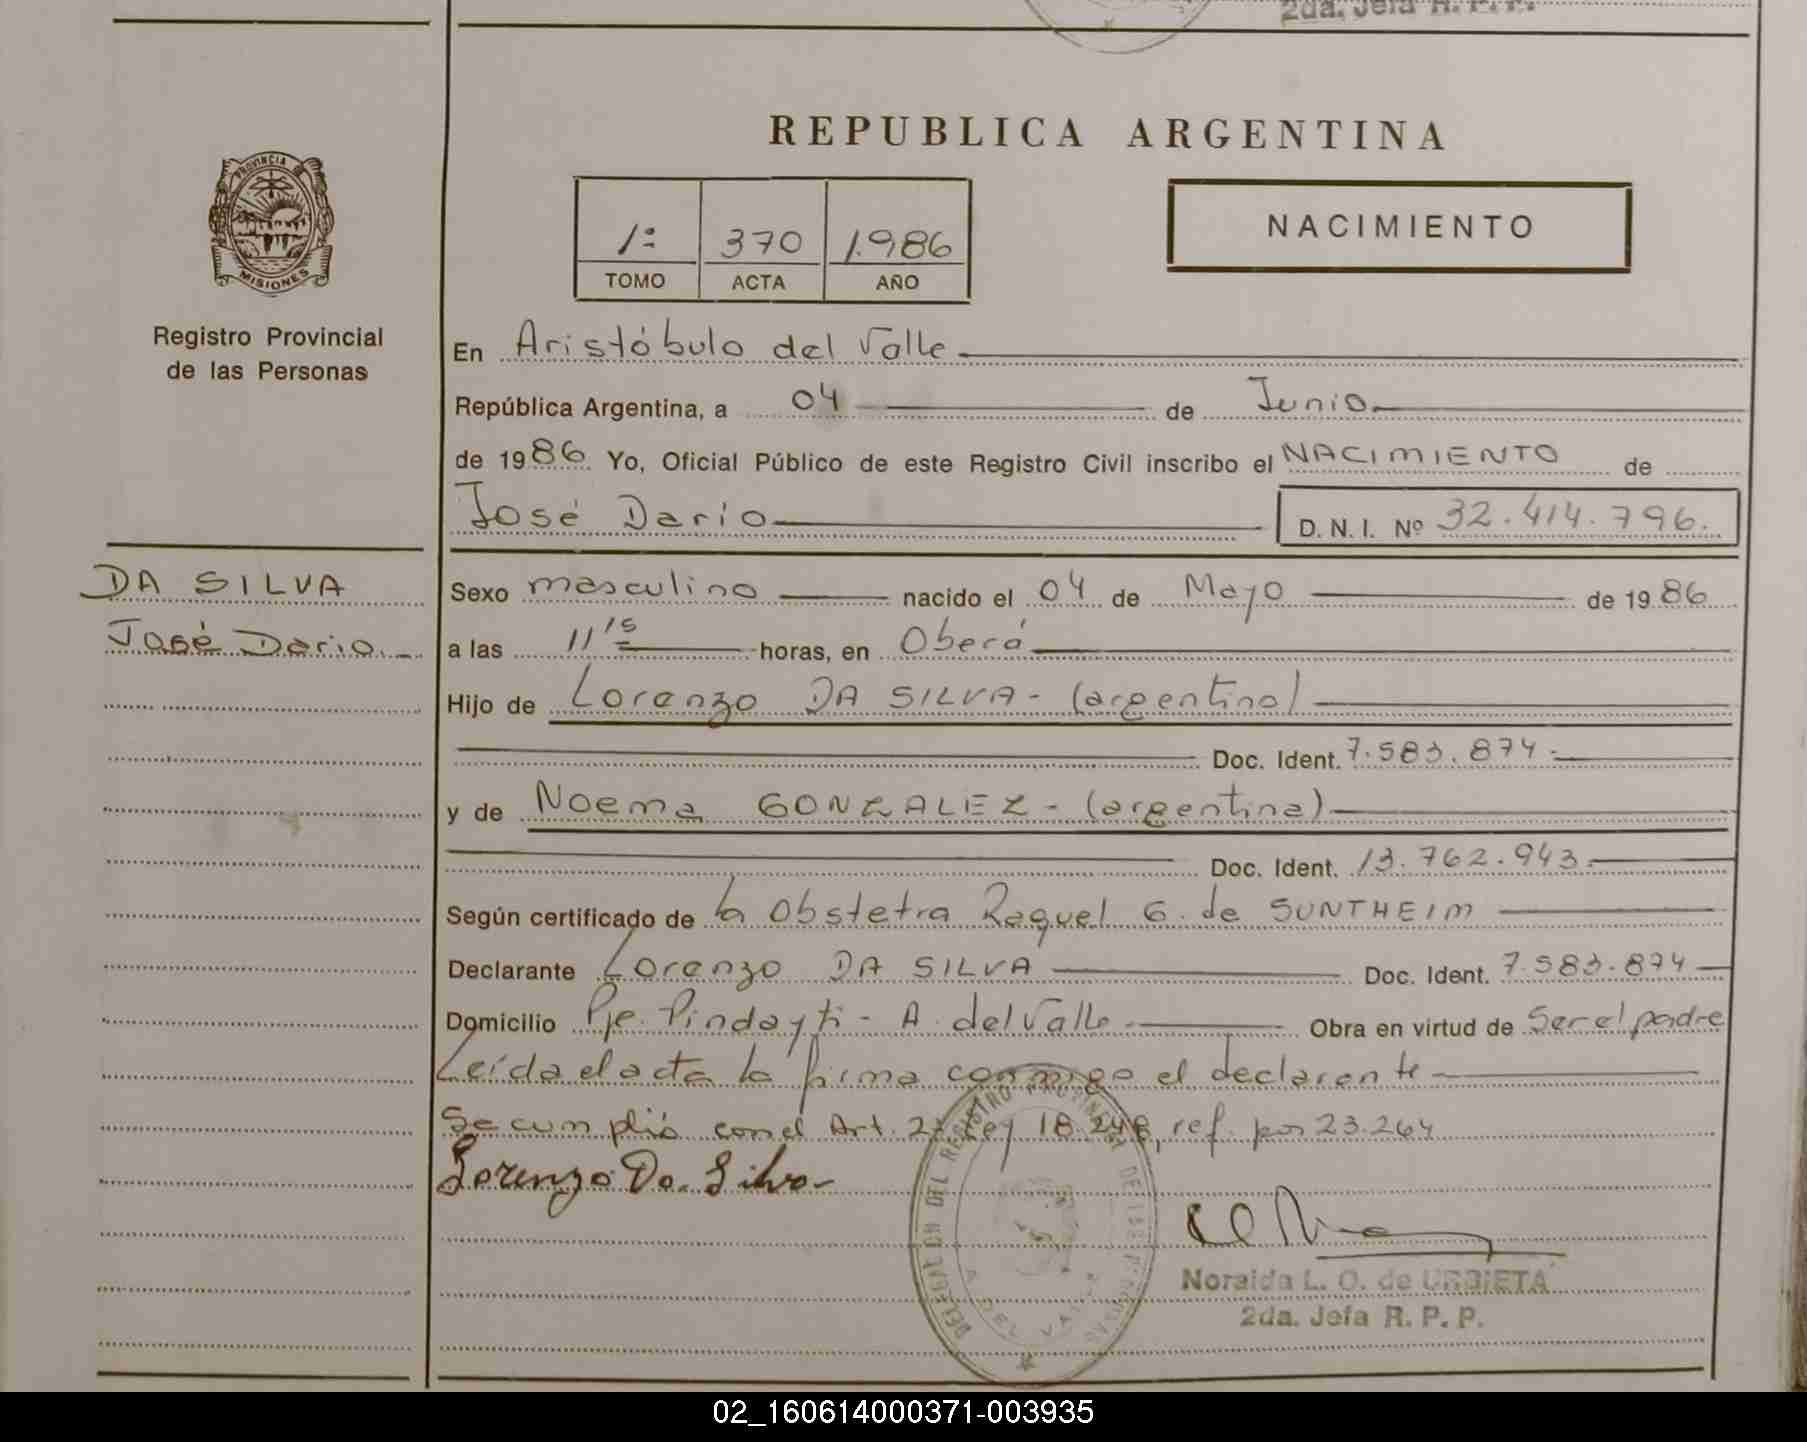 2da. Jefa R. P. P.
REPUBLICA ARGENTINA
PROVINCIA
MISIONES
Registro Provincial
de las Personas
1: 370 1.986
TOMO ACTA AÑO
NACIMIENTO
En Aristóbulo del Valle
República Argentina, a 04 de Junio
de 1986. Yo, Oficial Público de este Registro Civil inscribo el NACIMIENTO de
José Darío D. N. I. Nº 32.414.796.
DA SILVA
José Dario.-
Sexo masculino nacido el 04 de Mayo de 1986
a las 11 15 horas, en Oberá
Hijo de Lorenzo DA SILVA - (argentino)
Doc. Ident. 7.583.874.-
y de Noema GONZALEZ - (argentina)
Doc. Ident. 13.762.943.
Según certificado de la obstetra Raquel G. de SUNTHEIM
Declarante Lorenzo DA SILVA Doc. Ident. 7.583.874
Domicilio Pje. Pindayti - A. del Valle Obra en virtud de Ser el padre
Leída el acta la firma conmigo el declarante
Se cumplió con el Art. 2: Ley 18.248, ref. por 23.264
Lorenzo Da Silva-
DELEGACION DEL REGISTRO PROVINCIAL DE LAS PERSONAS
A. DEL VALLE
Noraida L. O. de URBIETA
2da. Jefa R. P. P.
02_160614000371-003935